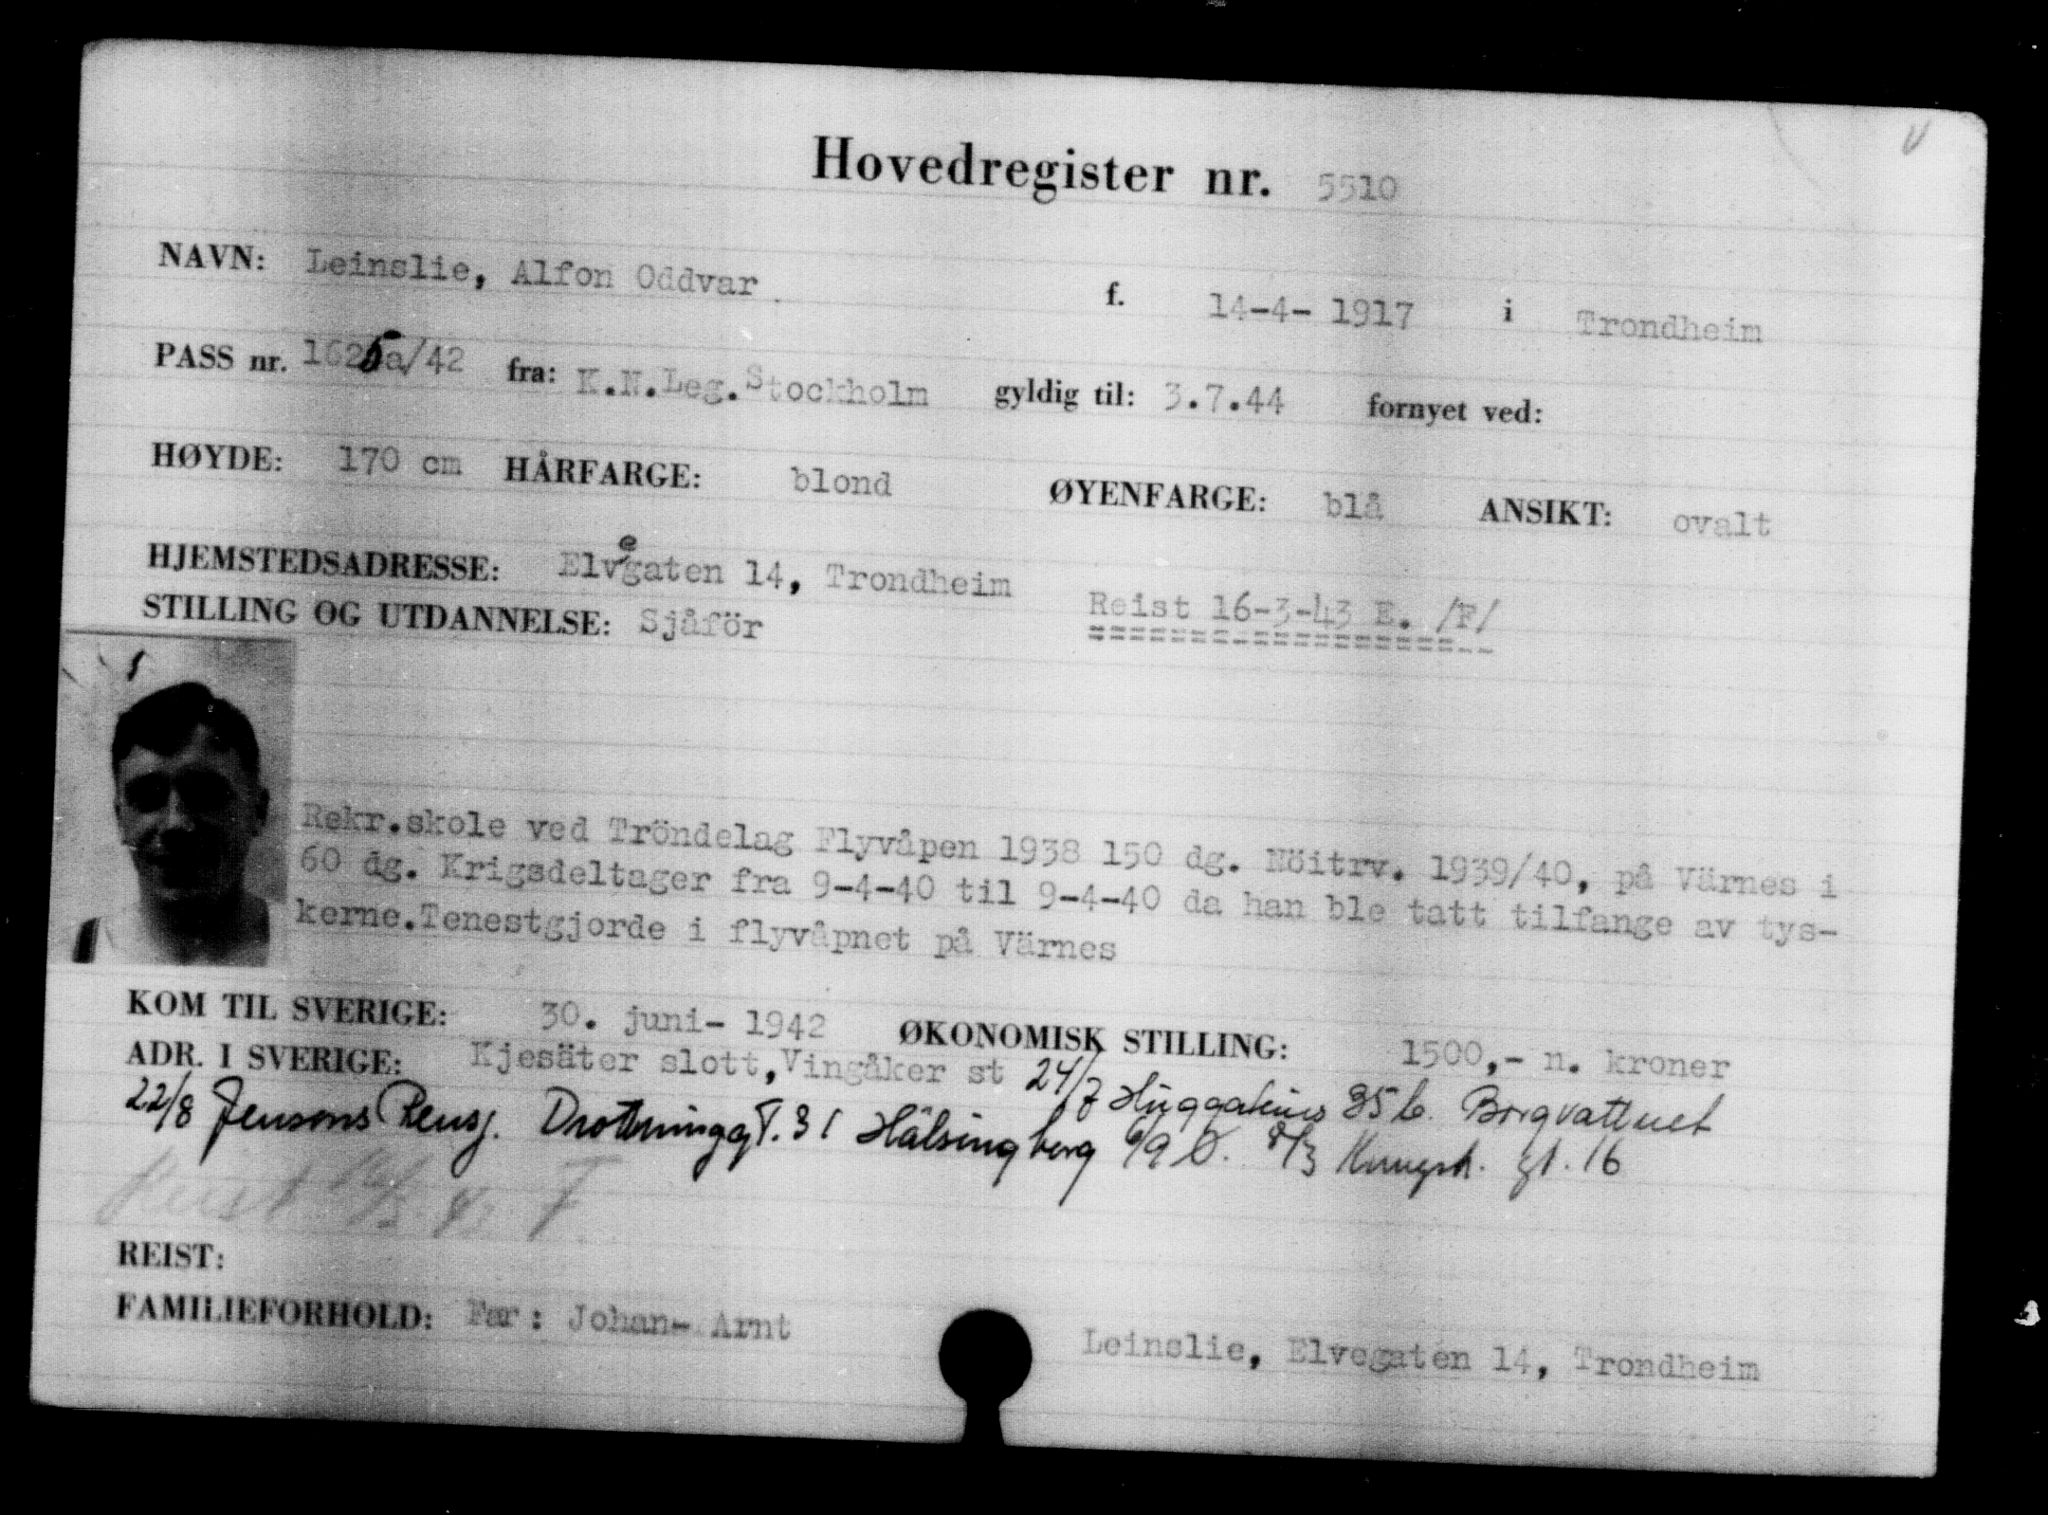 Hovedregister nr. 5510
NAVN: Leinslie, Alfon Oddvar f. 14-4- 1917 i Trondheim
PASS nr. 1625a/42 fra: K.N.Leg.Stockholm gyldig til: 3.7.44 fornyet ved:
HØYDE: 170 cm HÅRFARGE: blond ØYENFARGE: blå ANSIKT: ovalt
HJEMSTEDSADRESSE: Elvegaten 14, Trondheim
STILLING OG UTDANNELSE: Sjåför Reist 16-3-43 E. /F/
Rekr.skole ved Tröndelag Flyvåpen 1938 150 dg. Nöitrv. 1939/40, på Värnes i
60 dg. Krigsdeltager fra 9-4-40 til 9-4-40 da han ble tatt tilfange av tys-
kerne.Tenestgjorde i flyvåpnet på Värnes
KOM TIL SVERIGE: 30. juni- 1942 ØKONOMISK STILLING: 1500,- n. kroner
ADR. I SVERIGE: Kjesäter slott,Vingåker st 24/7 35 b. Borgvattnet
22/8 Jensons Pens. Drottninggt. 31 Hälsingborg 6/9 8/3 gt. 16
Reist 16/3.43 F
REIST:
FAMILIEFORHOLD: Far: Johan- Arnt Leinslie, Elvegaten 14, Trondheim